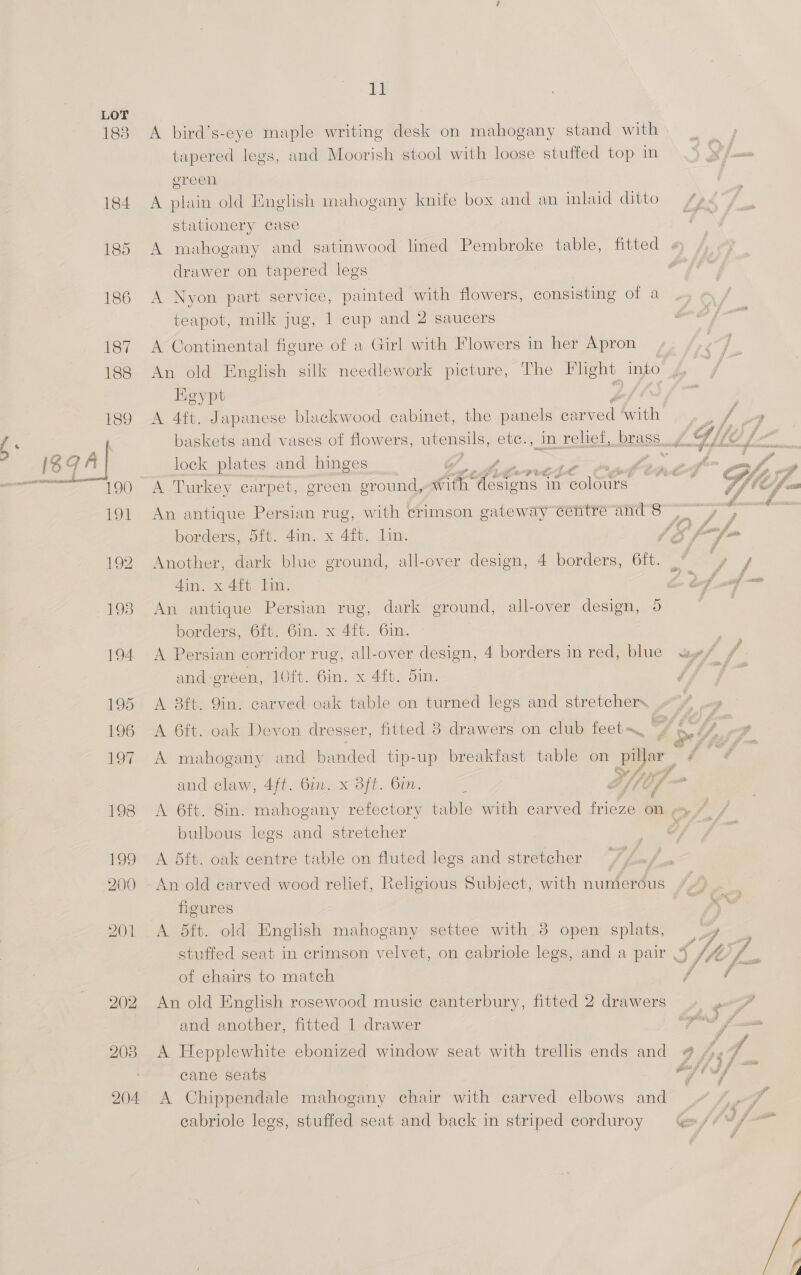 11
LOT
183 A bird's-eye maple writing desk on mahogany stand with
tapered legs, and Moorish stool with loose stuffed top in
green
184 A plain old English mahogany knife box and an inlaid ditto
stationery case
185 A mahogany and satinwood lined Pembroke table, fitted
drawer on tapered legs
186 A Nyon part service, painted with flowers, consisting of a
teapot, milk jug, 1 cup and 2 saucers
187 A Continental figure of a Girl with Flowers in her Apron
188 An old English silk needlework picture, The Flight into
Egypt
189 A 4ft. Japanese blackwood cabinet, the panels carved with
baskets and vases of flowers, utensils, etc., in relief, brass
189A lock plates and hinges
190 A Turkey carpet, green ground, with designs in colours
191 An antique Persian rug, with crimson gateway centre and 8
borders, 5ft. 4in. x 4ft. 1in.
192 Another, dark blue ground, all-over design, 4 borders, 6ft.
4in. x 4ft 1in.
193 An antique Persian rug, dark ground, all-over design, 5
borders, 6ft. 6in. x 4ft. 6in.
194 A Persian corridor rug, all-over design, 4 borders in red, blue
and green, 10ft. 6in. x 4ft. 5in.
195 A 3ft. 9in. carved oak table on turned legs and stretchers
196 A 6ft. oak Devon dresser, fitted 3 drawers on club feet
197 A mahogany and banded tip-up breakfast table on pillar
and claw, 4ft. 6in. x 3ft. 6in.
198 A 6ft. 8in. mahogany refectory table with carved frieze on
bulbous legs and stretcher
199 A 5ft. oak centre table on fluted legs and stretcher
200 An old carved wood relief, Religious Subject, with numerous
figures
201 A 5ft. old English mahogany settee with 3 open splats,
stuffed seat in crimson velvet, on cabriole legs, and a pair
of chairs to match
202 An old English rosewood music canterbury, fitted 2 drawers
and another, fitted 1 drawer
203 A Hepplewhite ebonized window seat with trellis ends and
cane seats
204 A Chippendale mahogany chair with carved elbows and
cabriole legs, stuffed seat and back in striped corduroy